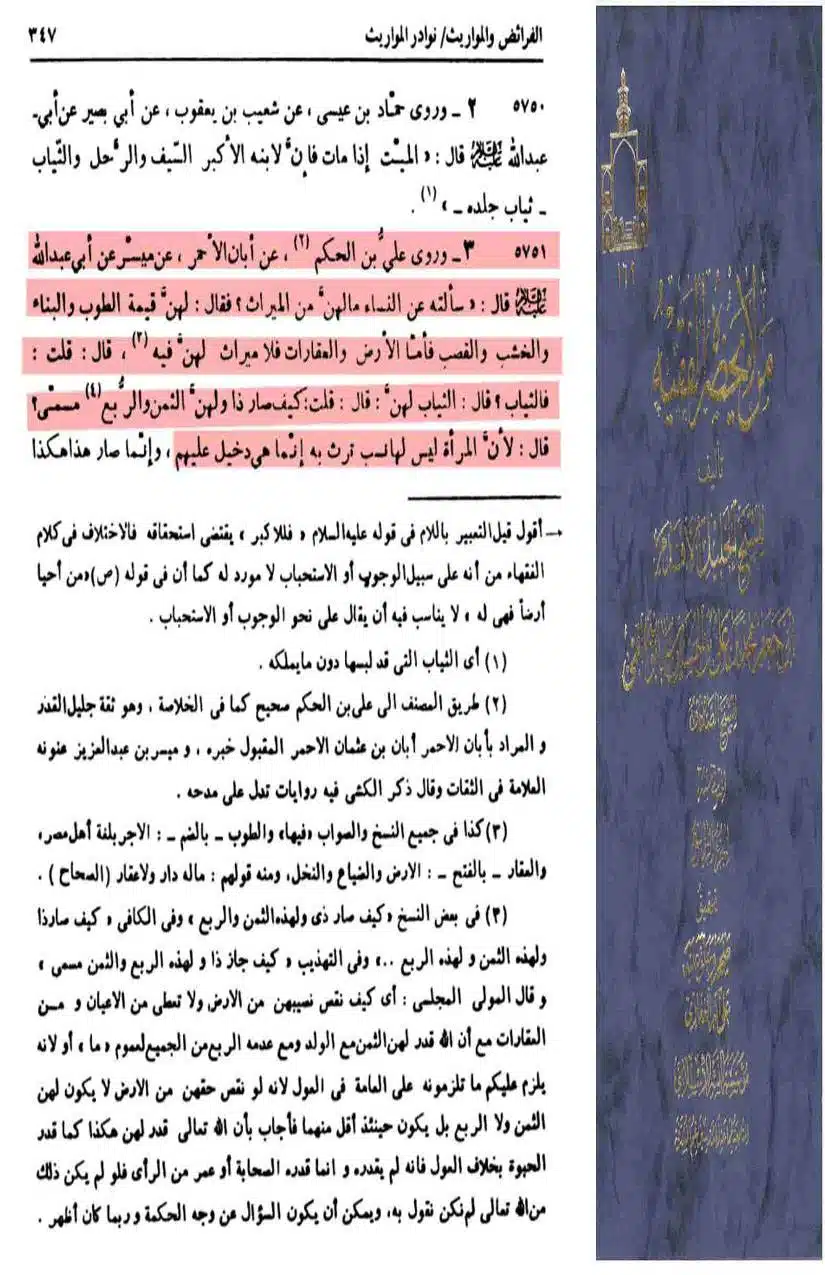 الفرائض والمواريث/ نوادر المواريث ٣٤٧
٥٧٥٠ ٢ ـ وروى حمّاد بن عيسى ، عن شعيب بن يعقوب ، عن أبي بصير عن أبي‌ـ
عبدالله عليه السلام قال : « الميّت إذا مات فإنّ لابنه الأكبر السّيف والرّحل والثّياب
ـ ثياب جلده ـ » (١) .
٥٧٥١ ٣ ـ وروى عليّ بن الحكم (٢) ، عن أبان الأحمر ، عن ميسّر عن أبي عبدالله
عليه السلام قال : « سألته عن النساء مالهنّ من الميراث ؟ فقال : لهنّ قيمة الطوب والبناء
والخشب والقصب فأمّا الأرض والعقارات فلا ميراث لهنّ فيه (٣) ، قال : قلت :
فالثياب ؟ قال : الثياب لهنّ : قال : قلت : كيف صار ذا ولهنّ الثمن والرّبع (٤) مسمّى ؟
قال : لأنّ المرأة ليس لها نسب ترث به إنّما هي دخيل عليهم ، وإنّما صار هذا هكذا
← أقول قيل التعبير باللام فى قوله عليه السلام « فللاكبر » يقتضى استحقاقه فالاختلاف فى كلام
الفقهاء من أنه على سبيل الوجوب أو الاستحباب لا مورد له كما أن فى قوله (ص) «من أحيا
أرضاً فهى له » لا يناسب فيه أن يقال على نحو الوجوب أو الاستحباب .
(١) أى الثياب التى قد لبسها دون ما يملكه .
(٢) طريق المصنف الى على بن الحكم صحيح كما فى الخلاصة ، وهو ثقة جليل القدر
و المراد بأبان الاحمر أبان بن عثمان الاحمر المقبول خبره ، و ميسر بن عبدالعزيز عنونه
العلامة فى الثقات وقال ذكر الكشى فيه روايات تدل على مدحه .
(٣) كذا فى جميع النسخ والصواب «فيها» والطوب ـ بالضم ـ : الاجر بلغة أهل مصر،
والعقار ـ بالفتح ـ : الارض والضياع والنخل، ومنه قولهم : ماله دار ولاعقار (الصحاح) .
(٤) فى بعض النسخ «كيف صار ذى ولهذه الثمن والربع » وفى الكافى « كيف صارذا
ولهذه الثمن و لهذه الربع ..» وفى التهذيب « كيف جاز ذا و لهذه الربع والثمن مسمى »
و قال المولى المجلسى : أى كيف نقص نصيبهن من الارض ولا تعطى من الاعيان و مـن
العقارات مع أن الله قدر لهن الثمن مع الولد ومع عدمه الربع من الجميع لعموم « ما » أو لانه
يلزم عليكم ما تلزمونه على العامة فى العول لانه لو نقص حقهن من الارض لا يكون لهن
الثمن ولا الربع بل يكون حينئذ أقل منهما فأجاب بأن الله تعالى قدر لهن هكذا كما قدر
الحبوة بخلاف العول فانه لم يقدره و انما قدره الصحابة أو عمر من الرأى فلو لم يكن ذلك
من الله تعالى لم نكن نقول به، ويمكن أن يكون السؤال عن وجه الحكمة و ربما كان أظهر .
من لا يحضره الفقيه
تأليف